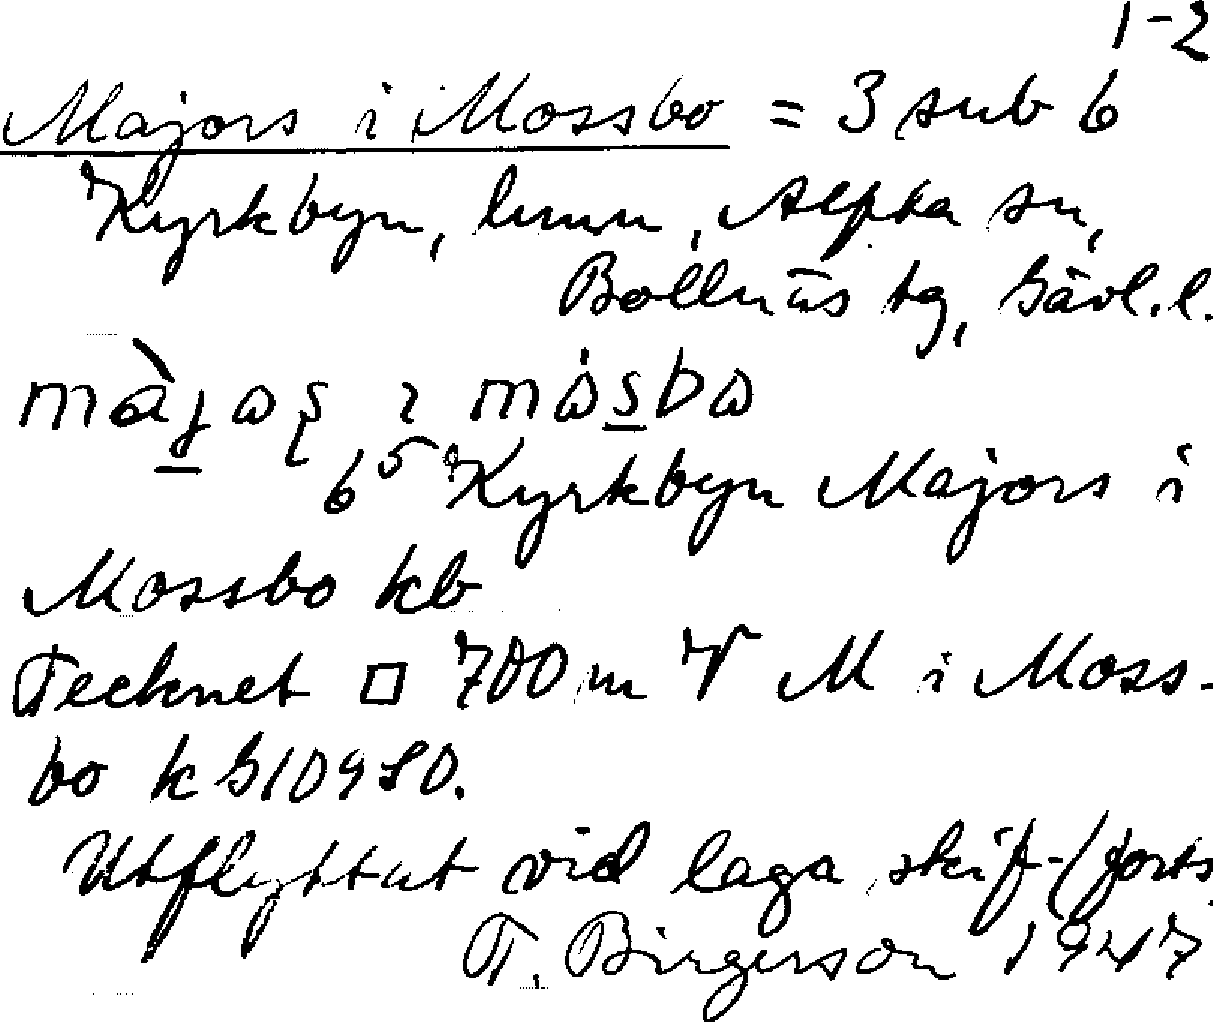 1-2
Majors i Mossbo = 3 sub 6
Kyrkbyn, hmn, Alfta sn,
Bollnäs tg, Gävl.l.
6⁵ Kyrkbyn Majors i
Mossbo kb
Tecknet □ 700 m V M i Moss-
bo k G10980.
Utflyttat vid laga skif-(forts.
T. Birgerson 1947